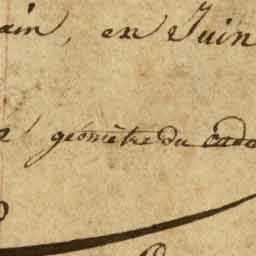 ain, en Juin
géomètre du cada